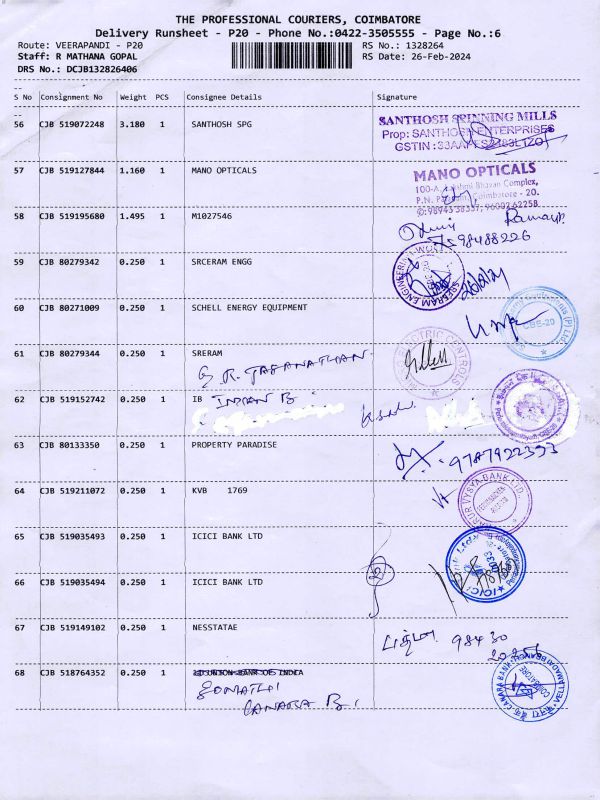 THE PROFESSIONAL COURIERS, COIMBATORE
Delivery Runsheet - P20 - Phone No.:0422-3505555 - Page No.:6
Route: VEERAPANDI - P20 RS No.: 1328264
Staff: R MATHANA GOPAL RS Date: 26-Feb-2024
DRS No.: DCJB132826406
S No Consignment No Weight PCS Consignee Details Signature
56 CJB 519072248 3.180 1 SANTHOSH SPG
SANTHOSH SPINNING MILLS
Prop: SANTHOSH ENTERPRISES
GSTIN :
57 CJB 519127844 1.160 1 MANO OPTICALS
MANO OPTICALS
100-A, Lakshmi Bhavan Complex,
Coimbatore - 20.
58 CJB 519195680 1.495 1 M1027546
98488226
59 CJB 80279342 0.250 1 SRCERAM ENGG
SREERAM ENGINEERING
60 CJB 80271009 0.250 1 SCHELL ENERGY EQUIPMENT
CBE-20
61 CJB 80279344 0.250 1 SRERAM
ELECTRIC CONTROLS
62 CJB 519152742 0.250 1 IB INDIAN B
63 CJB 80133350 0.250 1 PROPERTY PARADISE
9787922353
64 CJB 519211072 0.250 1 KVB 1769
KARUR VYSYA BANK LTD.
65 CJB 519035493 0.250 1 ICICI BANK LTD
ICICI Bank Ltd
66 CJB 519035494 0.250 1 ICICI BANK LTD
67 CJB 519149102 0.250 1 NESSTATAE
98430
68 CJB 518764352 0.250 1 UNION BANK OF INDIA
GOMATHI
CANARA B
CANARA BANK
COIMBATORE